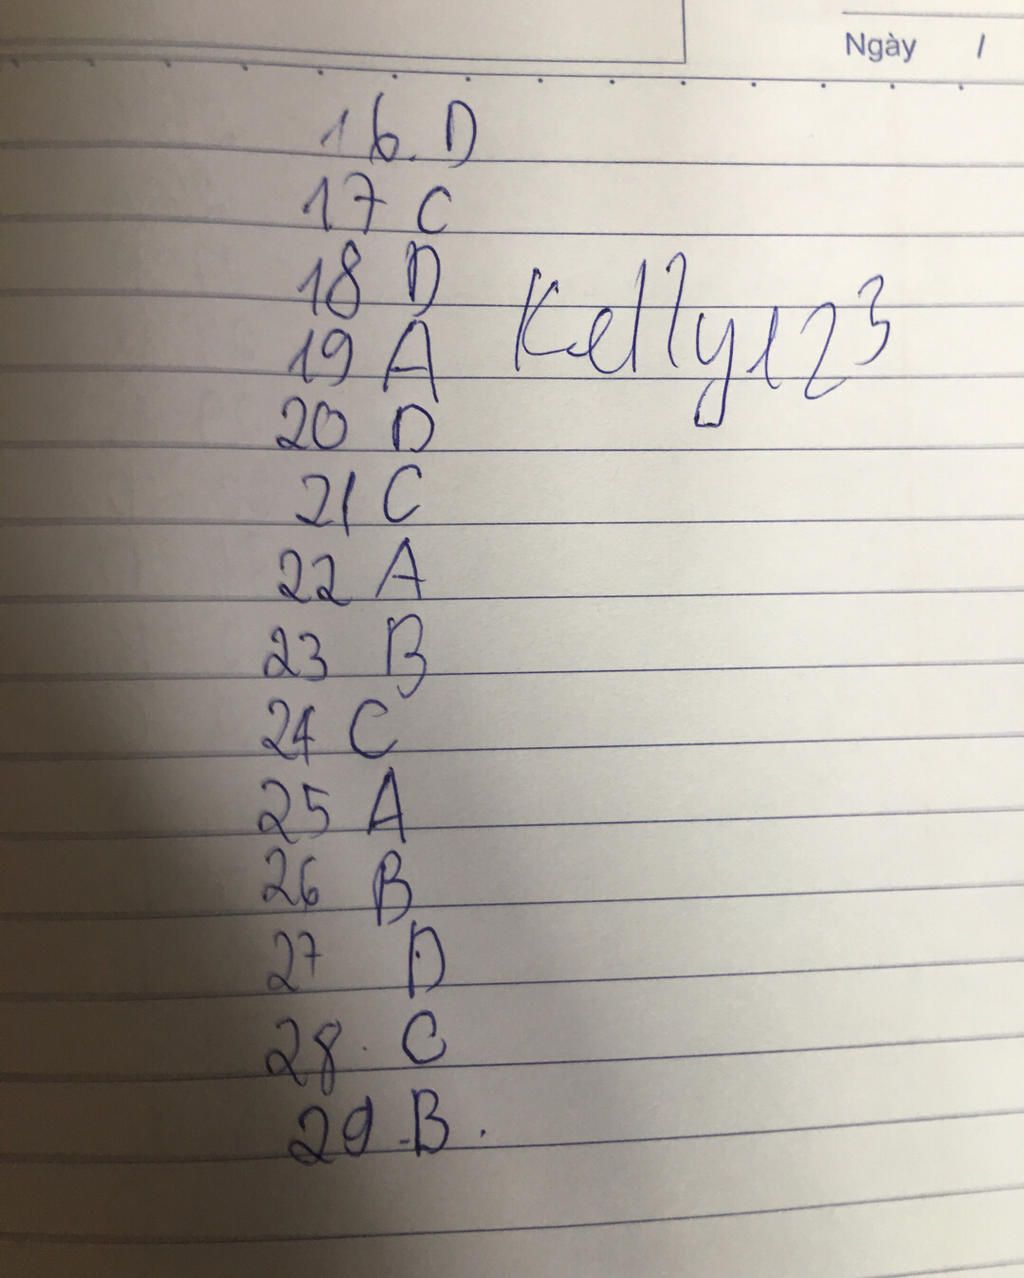 Ngày /
16. D
17 C
18 D
Kelly123
19 A
20 D
21 C
22 A
23 B
24 C
25 A
26 B
27 D
28. C
29 B.